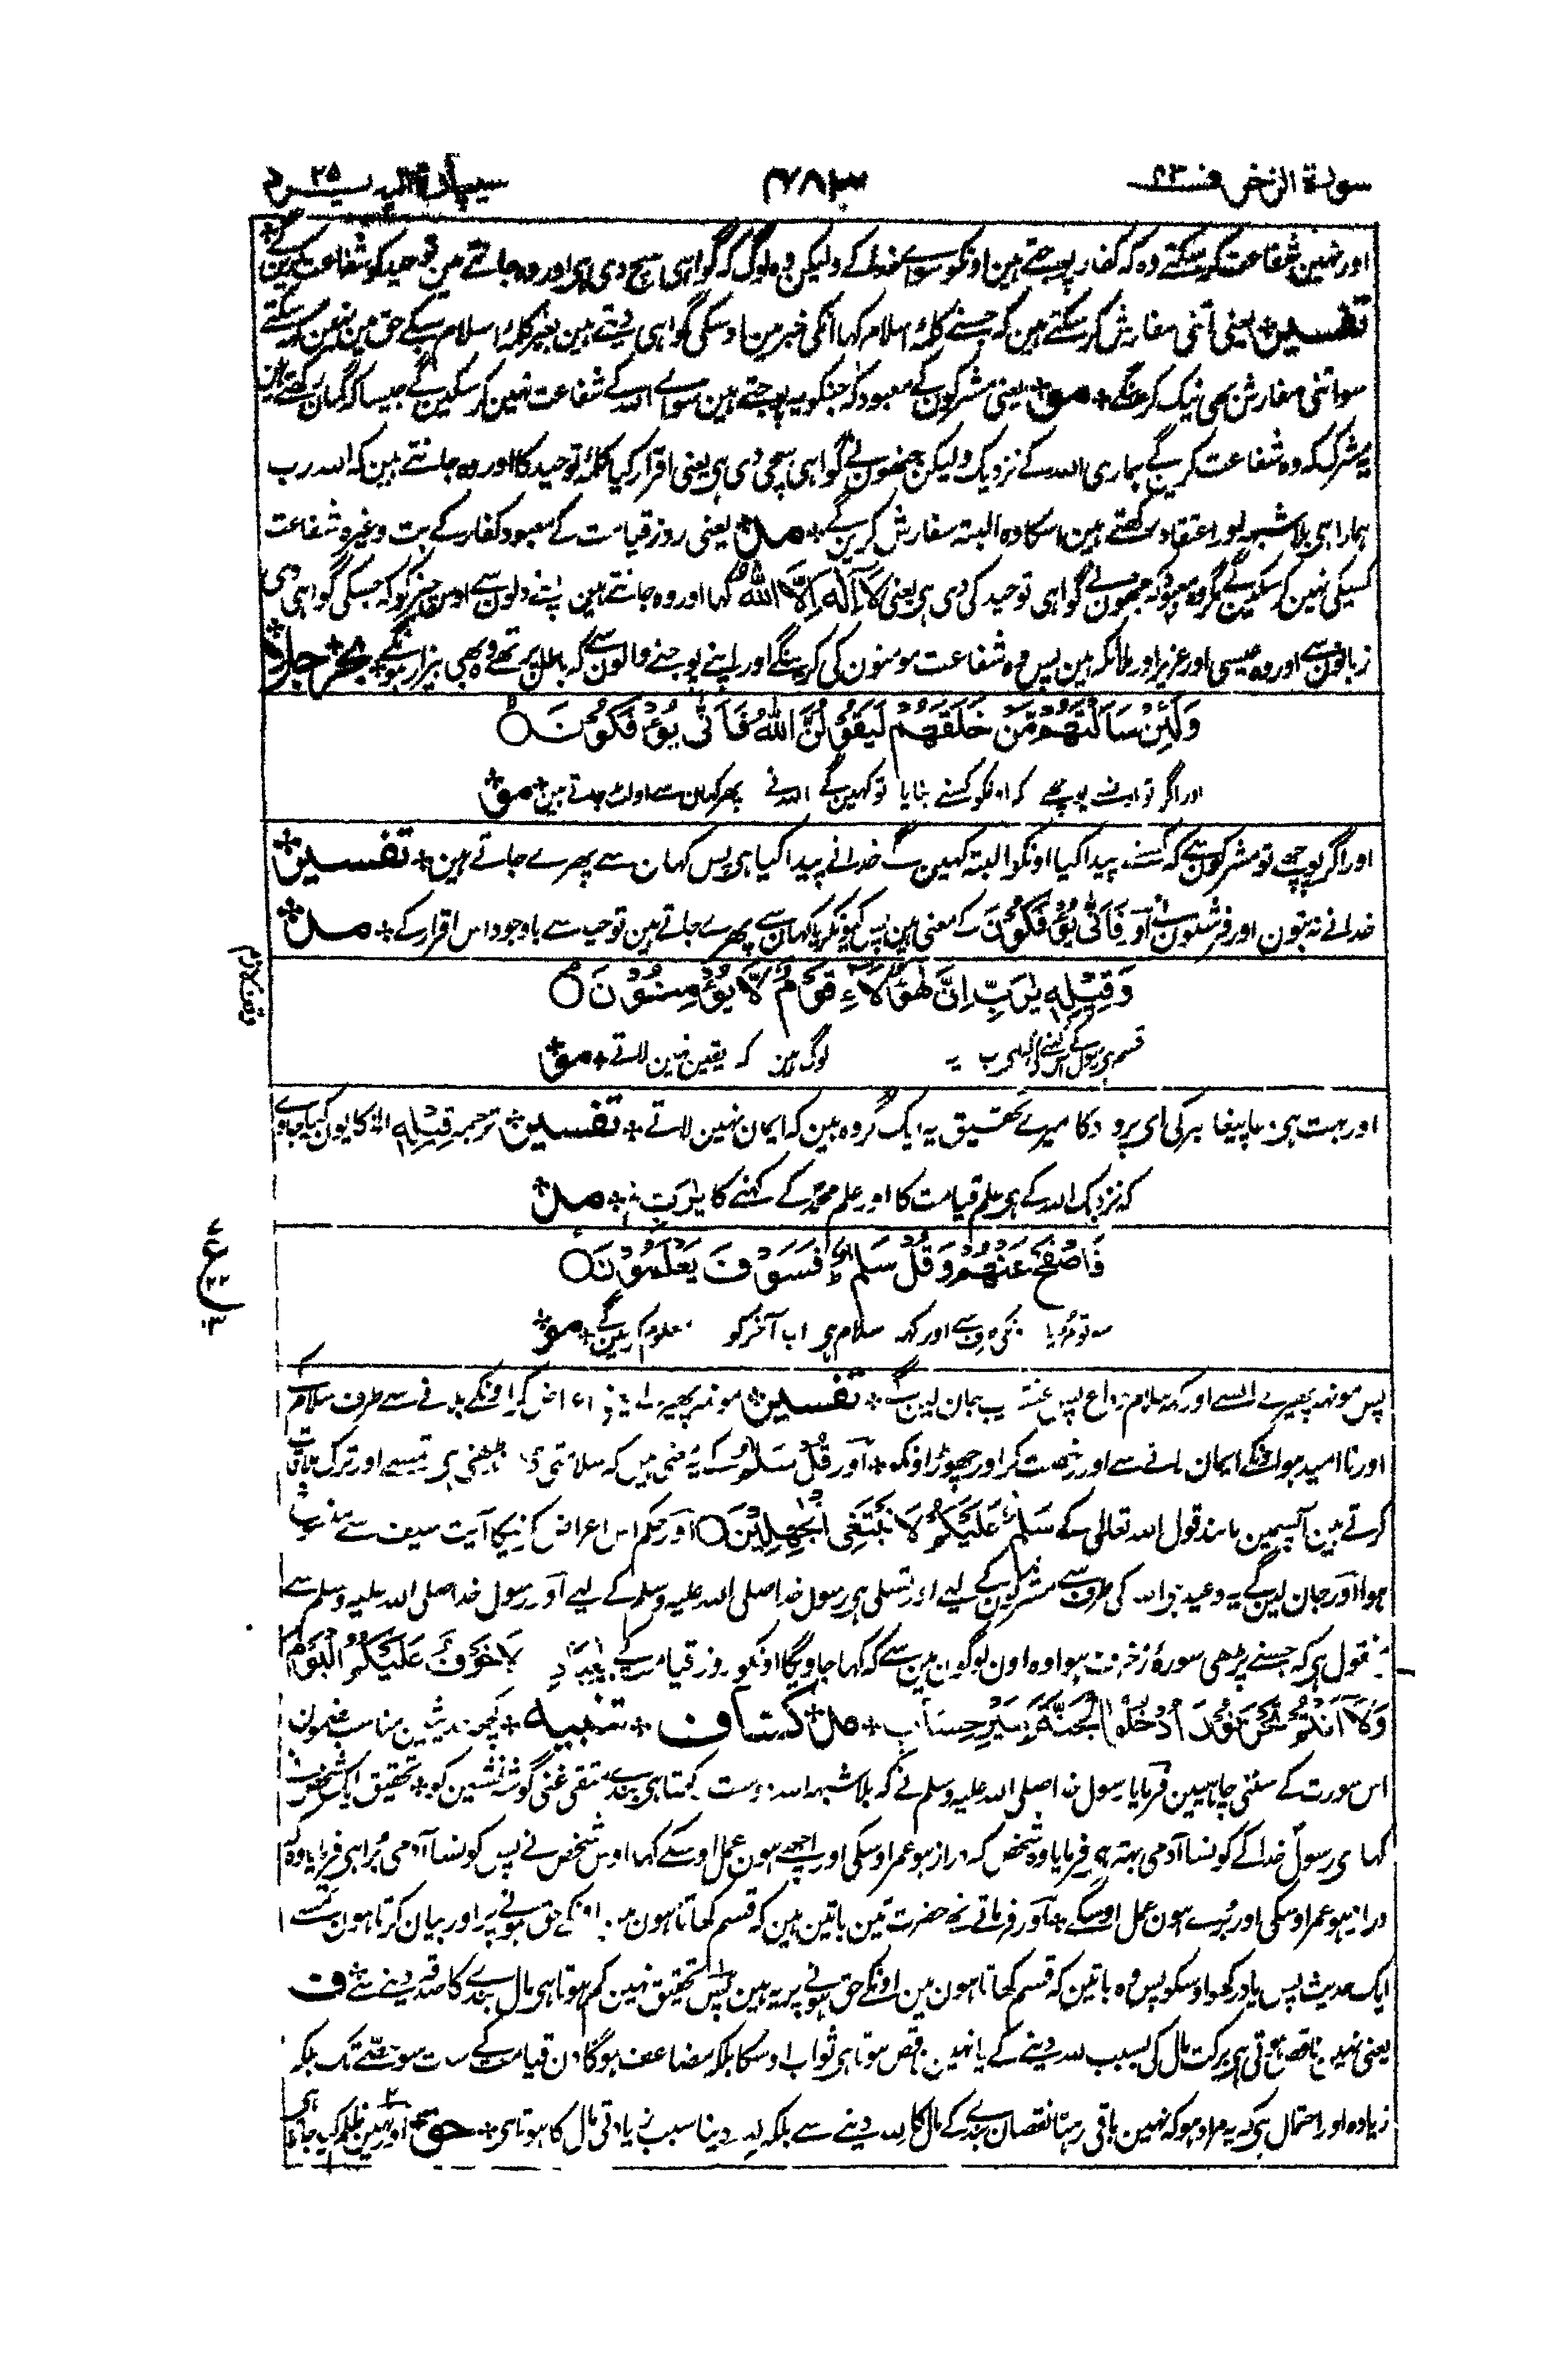 سورة الزخرف ۴۳ ۴۷۸ سیپارة الیہ یرد ۲۵
اور نہین شفاعت کر سکتے وہ کہ کفار پوجتے ہین اونکو سواے خدا کے ولیکن وہ لوگ کہ گواہی سچ دی ہی اور وہ جانتے ہین توحید کو شفاعت کرین گے٭
تفسیر٭ یعنی اتنی سفارش کر سکتے ہین کہ جسنے کلمۂ اسلام کہا انکی خبر مین اوسکی گواہی دیتے ہین بغیر کلمۂ اسلام کے حق مین نہین کر سکتے
سو اتنی سفارش بھی نیک کرینگے٭ مو٭ یعنی مشرکون کے معبود کہ جنکو یہ پوجتے ہین سواے اللہ کے شفاعت نہین کر سکین گے جیسا کہ گمان رکھتے ہین
مشرک کہ وہ شفاعت کرین گے ہماری اللہ کے نزدیک ولیکن جنھون نے گواہی سچی دی ہی یعنی اقرار کیا کلمۂ توحید کا اور وہ جانتے ہین کہ اللہ رب
ہمارا ہی بلاشبہہ اور اعتقاد رکھتے ہین اسکا وہ البتہ سفارش کرین گے٭ مل٭ یعنی روز قیامت کے معبود کفار کے بت وغیرہ شفاعت
کسیکی نہین کر سکین گے مگر وہ معبود کہ جنھون نے گواہی توحید کی دی ہی یعنی لَا اِلٰهَ اِلَّا اللّٰهُ کہا اور وہ جانتے ہین اپنے دلون سے اوس چیز کو کہ جسکی گواہی دی
زبانون سے اور وہ عیسی اور عزیر اور ملائکہ ہین پس وہ شفاعت مومنون کی کرینگے اور اپنے پوجنے والون سے کہ باطل پر تھے وہ بھی بیزار ہونگے٭ بحر جل٭
وَلَئِنْ سَاَلْتَهُمْ مَّنْ خَلَقَهُمْ لَیَقُوْلُنَّ اللّٰهُ فَاَنّٰی یُؤْفَکُوْنَ ۝
اور اگر تو اونسے پوچھے کہ اونکو کسنے بنایا تو کہین گے اللہ نے پھر کہان سے اولٹ جاتے ہین٭ مو٭
اور اگر پوچھے تو مشرکون سے کہ کسنے پیدا کیا اونکو البتہ کہین گے خدا نے پیدا کیا ہی پس کہان سے پھرے جاتے ہین٭ تفسیر٭
خدا نے نہ بتون اور فرشتون نے اور فَاَنّٰی یُؤْفَکُوْنَ کے معنی ہین پس کیونکر یا کہان سے پھرے جاتے ہین توحید سے باوجود اس اقرار کے٭ مل٭
وَقِیْلِهٖ یٰرَبِّ اِنَّ هٰٓؤُلَآءِ قَوْمٌ لَّا یُؤْمِنُوْنَ ۝
قسم ہی رسول کے اس کہنے کی اے رب یہ لوگ ہین کہ یقین نہین لاتے٭ مو٭
اور بہت ہی دعا پیغامبر کی ای پروردگار میرے تحقیق یہ ایک گروہ ہین کہ ایمان نہین لاتے٭ تفسیر٭ ترجمہ قِیْلِهٖ الخ کا یون کیا جاوے
کہ نزدیک اللہ کے ہی علم قیامت کا اور علم محمدؐ کے کہنے کا یٰرَبِّ ٭ مل٭
فَاصْفَحْ عَنْهُمْ وَقُلْ سَلٰمٌ فَسَوْفَ یَعْلَمُوْنَ ۝
سو تو مڑ یا اونکی طرف سے اور کہہ سلام ہی اب آخر کو معلوم کرین گے٭ مو٭
پس مونہہ پھیرے انسے اور کہہ سلام وداع پس عنقریب جان لین گے٭ تفسیر٭ مونہہ پھیر لے یعنی اعراض کر اونکے بلانے سے طرف اسلام کے
اور ناامید ہو اونکے ایمان لانے سے اور رخصت کر اور چھوڑ اونکو٭ اور قُلْ سَلٰمٌ کے یہ معنی ہین کہ سلامتی ڈھونڈھنی ہی تمسے اور ترک ملاقات
کرتے ہین آپسمین مانند قول اللہ تعالی کے سَلٰمٌ عَلَیْکُمْ لَا نَبْتَغِی الْجٰهِلِیْنَ ۝ اور حکم اس اعراض کرنیکا آیت سیف سے منسوخ
ہوا اور جان لین گے یہ وعید ہی اللہ کی طرف سے مشرکون کے لیے اور تسلی ہی رسول خدا صلی اللہ علیہ وسلم کے لیے اور رسول خدا صلی اللہ علیہ وسلم سے
منقول ہی کہ جسنے پڑھی سورۂ زخرف ہوا وہ اون لوگون مین سے کہ کہا جاویگا اونکو روز قیامت کے یٰعِبَادِ لَا خَوْفٌ عَلَیْکُمُ الْیَوْمَ
وَلَآ اَنْتُمْ تَحْزَنُوْنَ اُدْخُلُوا الْجَنَّةَ بِغَیْرِ حِسَابٍ٭ مل٭ کشاف٭ تنبیہ٭ کچھ حدیثین مناسب مضمون
اس سورت کے سنی چاہیین فرمایا رسول خدا صلی اللہ علیہ وسلم نے کہ بلاشبہہ اللہ دوست رکھتا ہی بندے متقی غنی گوشہ نشین کو٭ تحقیق ایک شخص نے
کہا ای رسول خدا کے کونسا آدمی بہتر ہے فرمایا وہ شخص کہ دراز ہو عمر اوسکی اور اچھے ہون عمل اوسکے کہا اوس شخص نے پس کونسا آدمی بُرا ہی فرمایا وہ کہ
دراز ہو عمر اوسکی اور بُرے ہون عمل اوسکے٭ اور فرماتے تھے حضرت تین باتین ہین کہ قسم کھاتا ہون مین اونکے حق ہونے پر اور بیان کرتا ہون تمسے
ایک حدیث پس یاد رکھو اوسکو پس وہ باتین کہ قسم کھاتا ہون مین اونکے حق ہونے پر یہ ہین پس تحقیق نہین کم ہوتا ہی مال بندے کا صدقہ دینے سے٭ ف
یعنی نہین ناقص ہوتی ہی برکت مال کی بسبب للہ دینے کے یا نہین ناقص ہوتا ہی ثواب اوسکا بلکہ مضاعف ہوگا دن قیامت کے سات سو حصے تک بلکہ
زیادہ اور احتمال ہی کہ یہ مراد ہو کہ نہین باقی رہتا نقصان بندے کے مال کا للہ دینے سے بلکہ للہ دینا سبب زیادتی مال کا ہوتا ہی٭ حق٭ اور نہین ظلم کیا جاتا ہی